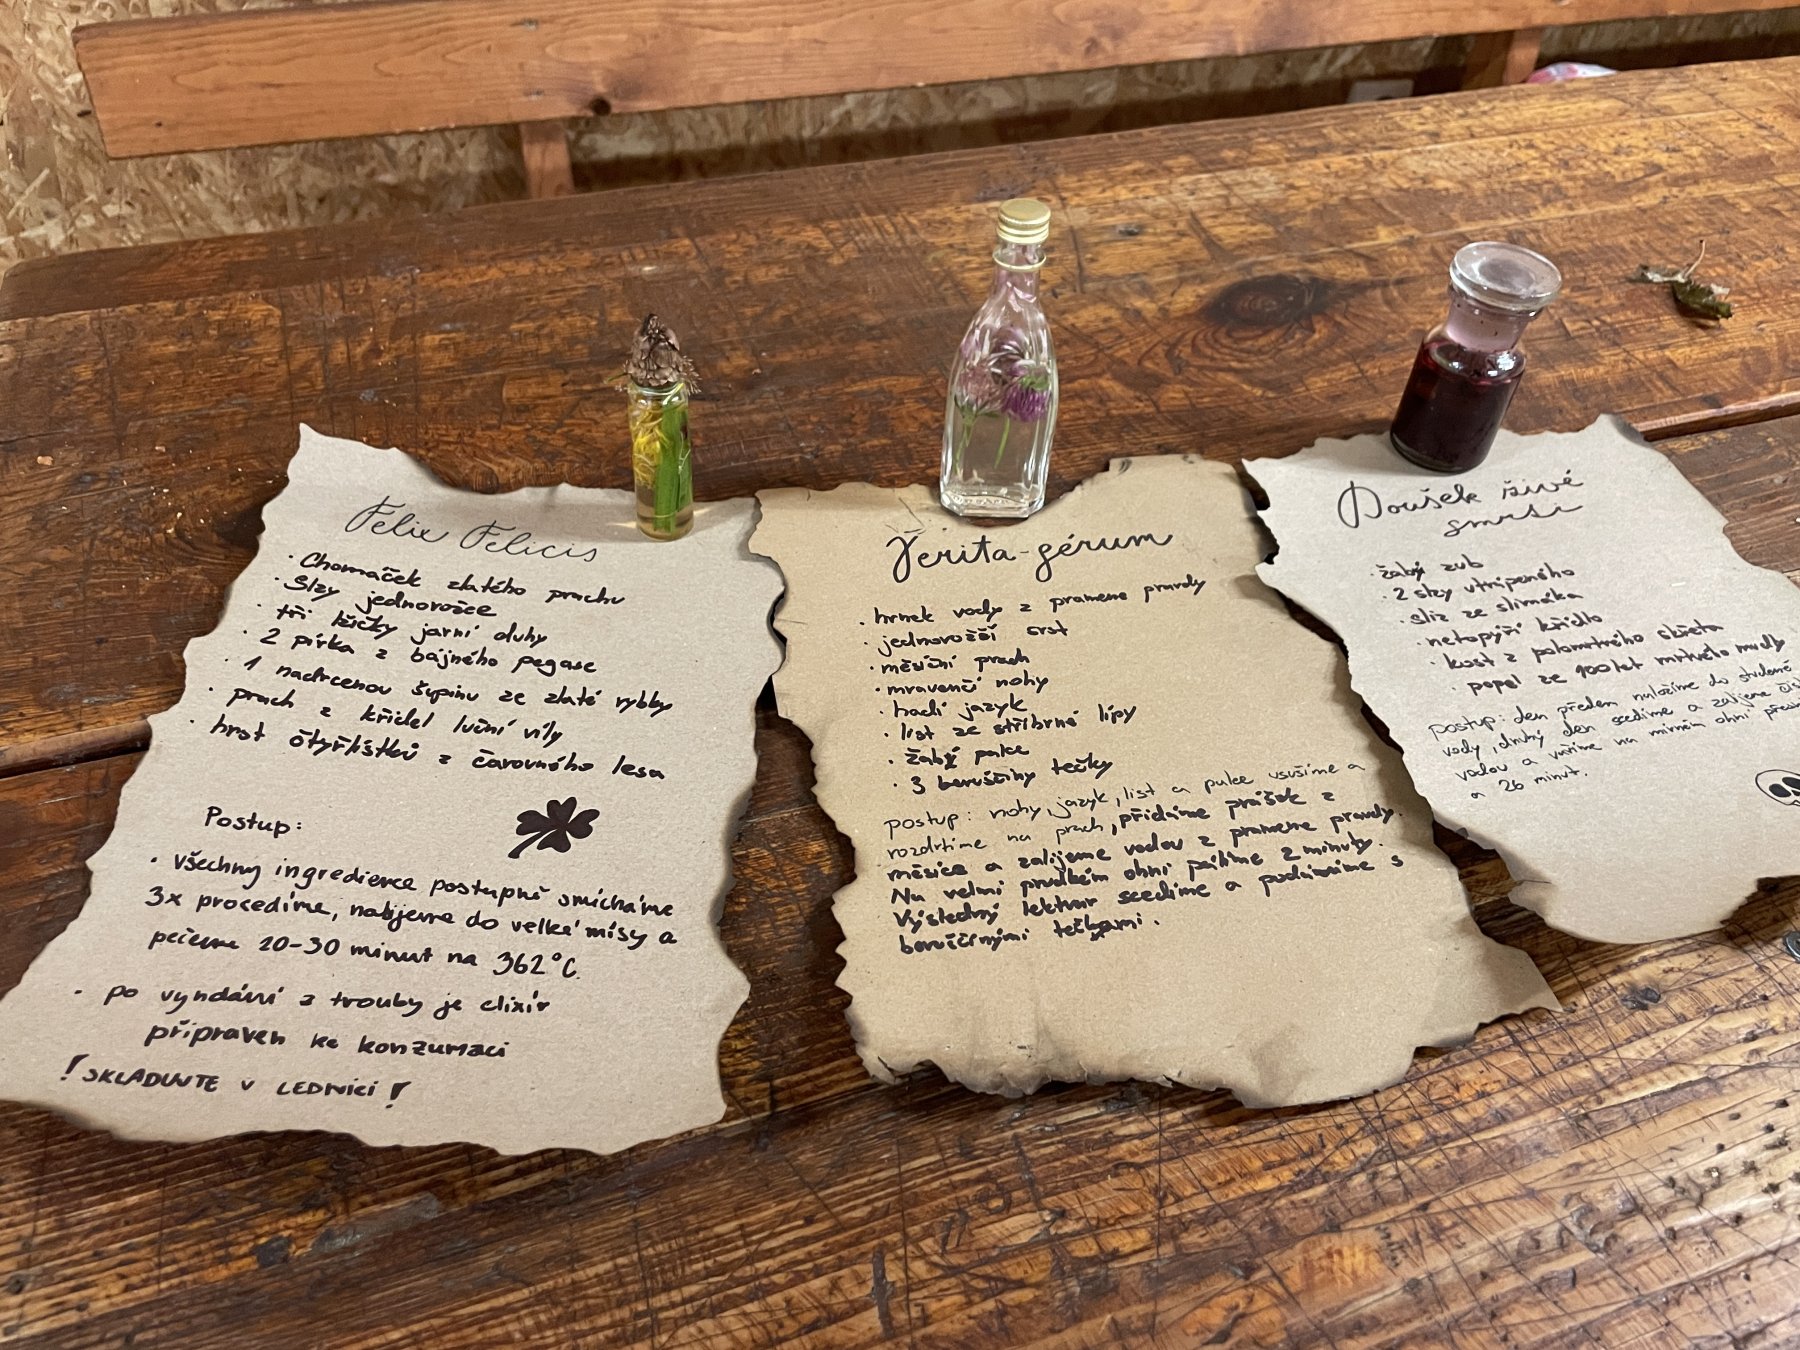 Felix Felicis
· Chomáček zlatého prachu
· Slzy jednorožce
· tři lžičky jarní duhy
· 2 pírka z bájného pegase
· 1 nadrcenou šupinu ze zlaté rybky
· prach z křídel luční víly
· hrst čtyřlístků z čarovného lesa
Postup:
· všechny ingredience postupně smícháme
3x procedíme, nalijeme do velké mísy a
pečeme 20-30 minut na 362°C.
· po vyndání z trouby je elixír
připraven ke konzumaci
! SKLADUJTE V LEDNICI !
Verita-gérum
· hrnek vody z pramene pravdy
· jednorožčí srst
· měsíční prach
· mravenčí nohy
· hadí jazyk
· list ze stříbrné lípy
· žabí palec
· 3 beruščiny tečky
postup: nohy, jazyk, list a palec usušíme a
rozdrtíme na prach, přidáme prášek z
měsíce a zalijeme vodou z pramene pravdy.
Na velmi prudkém ohni pálíme 2 minuty.
Výsledný lektvar scedíme a podáváme s
beruščinými tečkami.
Doušek živé
smrti
· žabí zub
· 2 slzy utrápeného
· sliz ze slimáka
· netopýří křídlo
· kost z polomrtvého skřeta
· popel ze 100 let mrtvého mudly
postup: den předem naložíme do studené
vody, druhý den scedíme a zalijeme
vodou a vaříme na mírném ohni
a 26 minut.